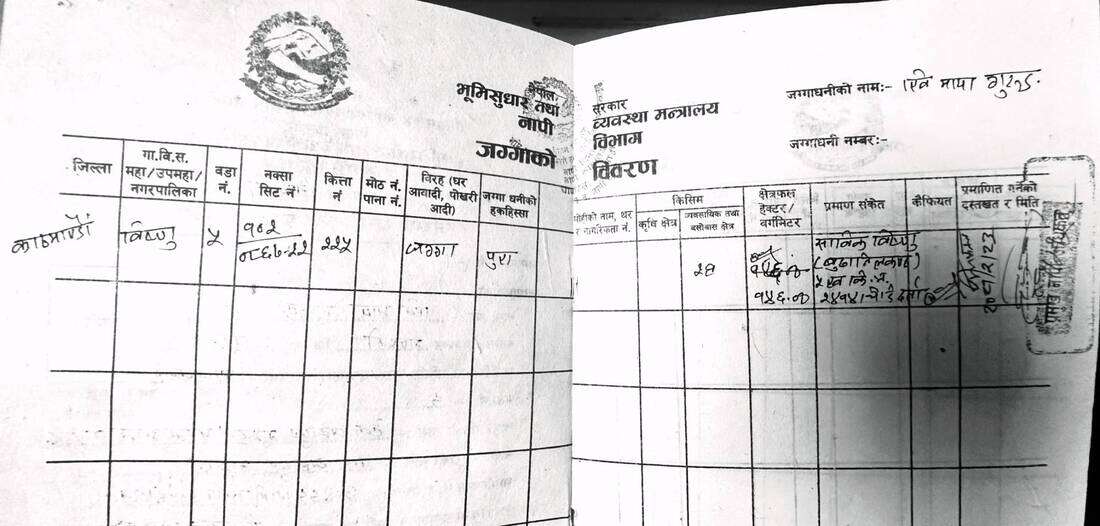 नेपाल सरकार
भूमिसुधार तथा व्यवस्था मन्त्रालय
नापी विभाग
जग्गाको विवरण
जग्गाधनीको नाम:- माया गुरुङ
जग्गाधनी नम्बर:-
जिल्ला
गा.वि.स.
महा/उपमहा/
नगरपालिका
वडा
नं.
नक्सा
सिट नं
कित्ता
नं
मोठ नं.
पाना नं.
विरह (घर
आवादी, पोखरी
आदी)
जग्गा धनीको
हकहिस्सा
मोहीको नाम, थर
र नागरिकता नं.
किसिम
कृषि क्षेत्र
व्यवसायिक तथा
बसोबास क्षेत्र
क्षेत्रफल
हेक्टर/
वर्गमिटर
प्रमाण संकेत
कैफियत
प्रमाणित गर्नेको
दस्तखत र मिति
काठमाण्डौं
विष्णु
५
१०२
२२५
जग्गा
पुरा
साविक विष्णु